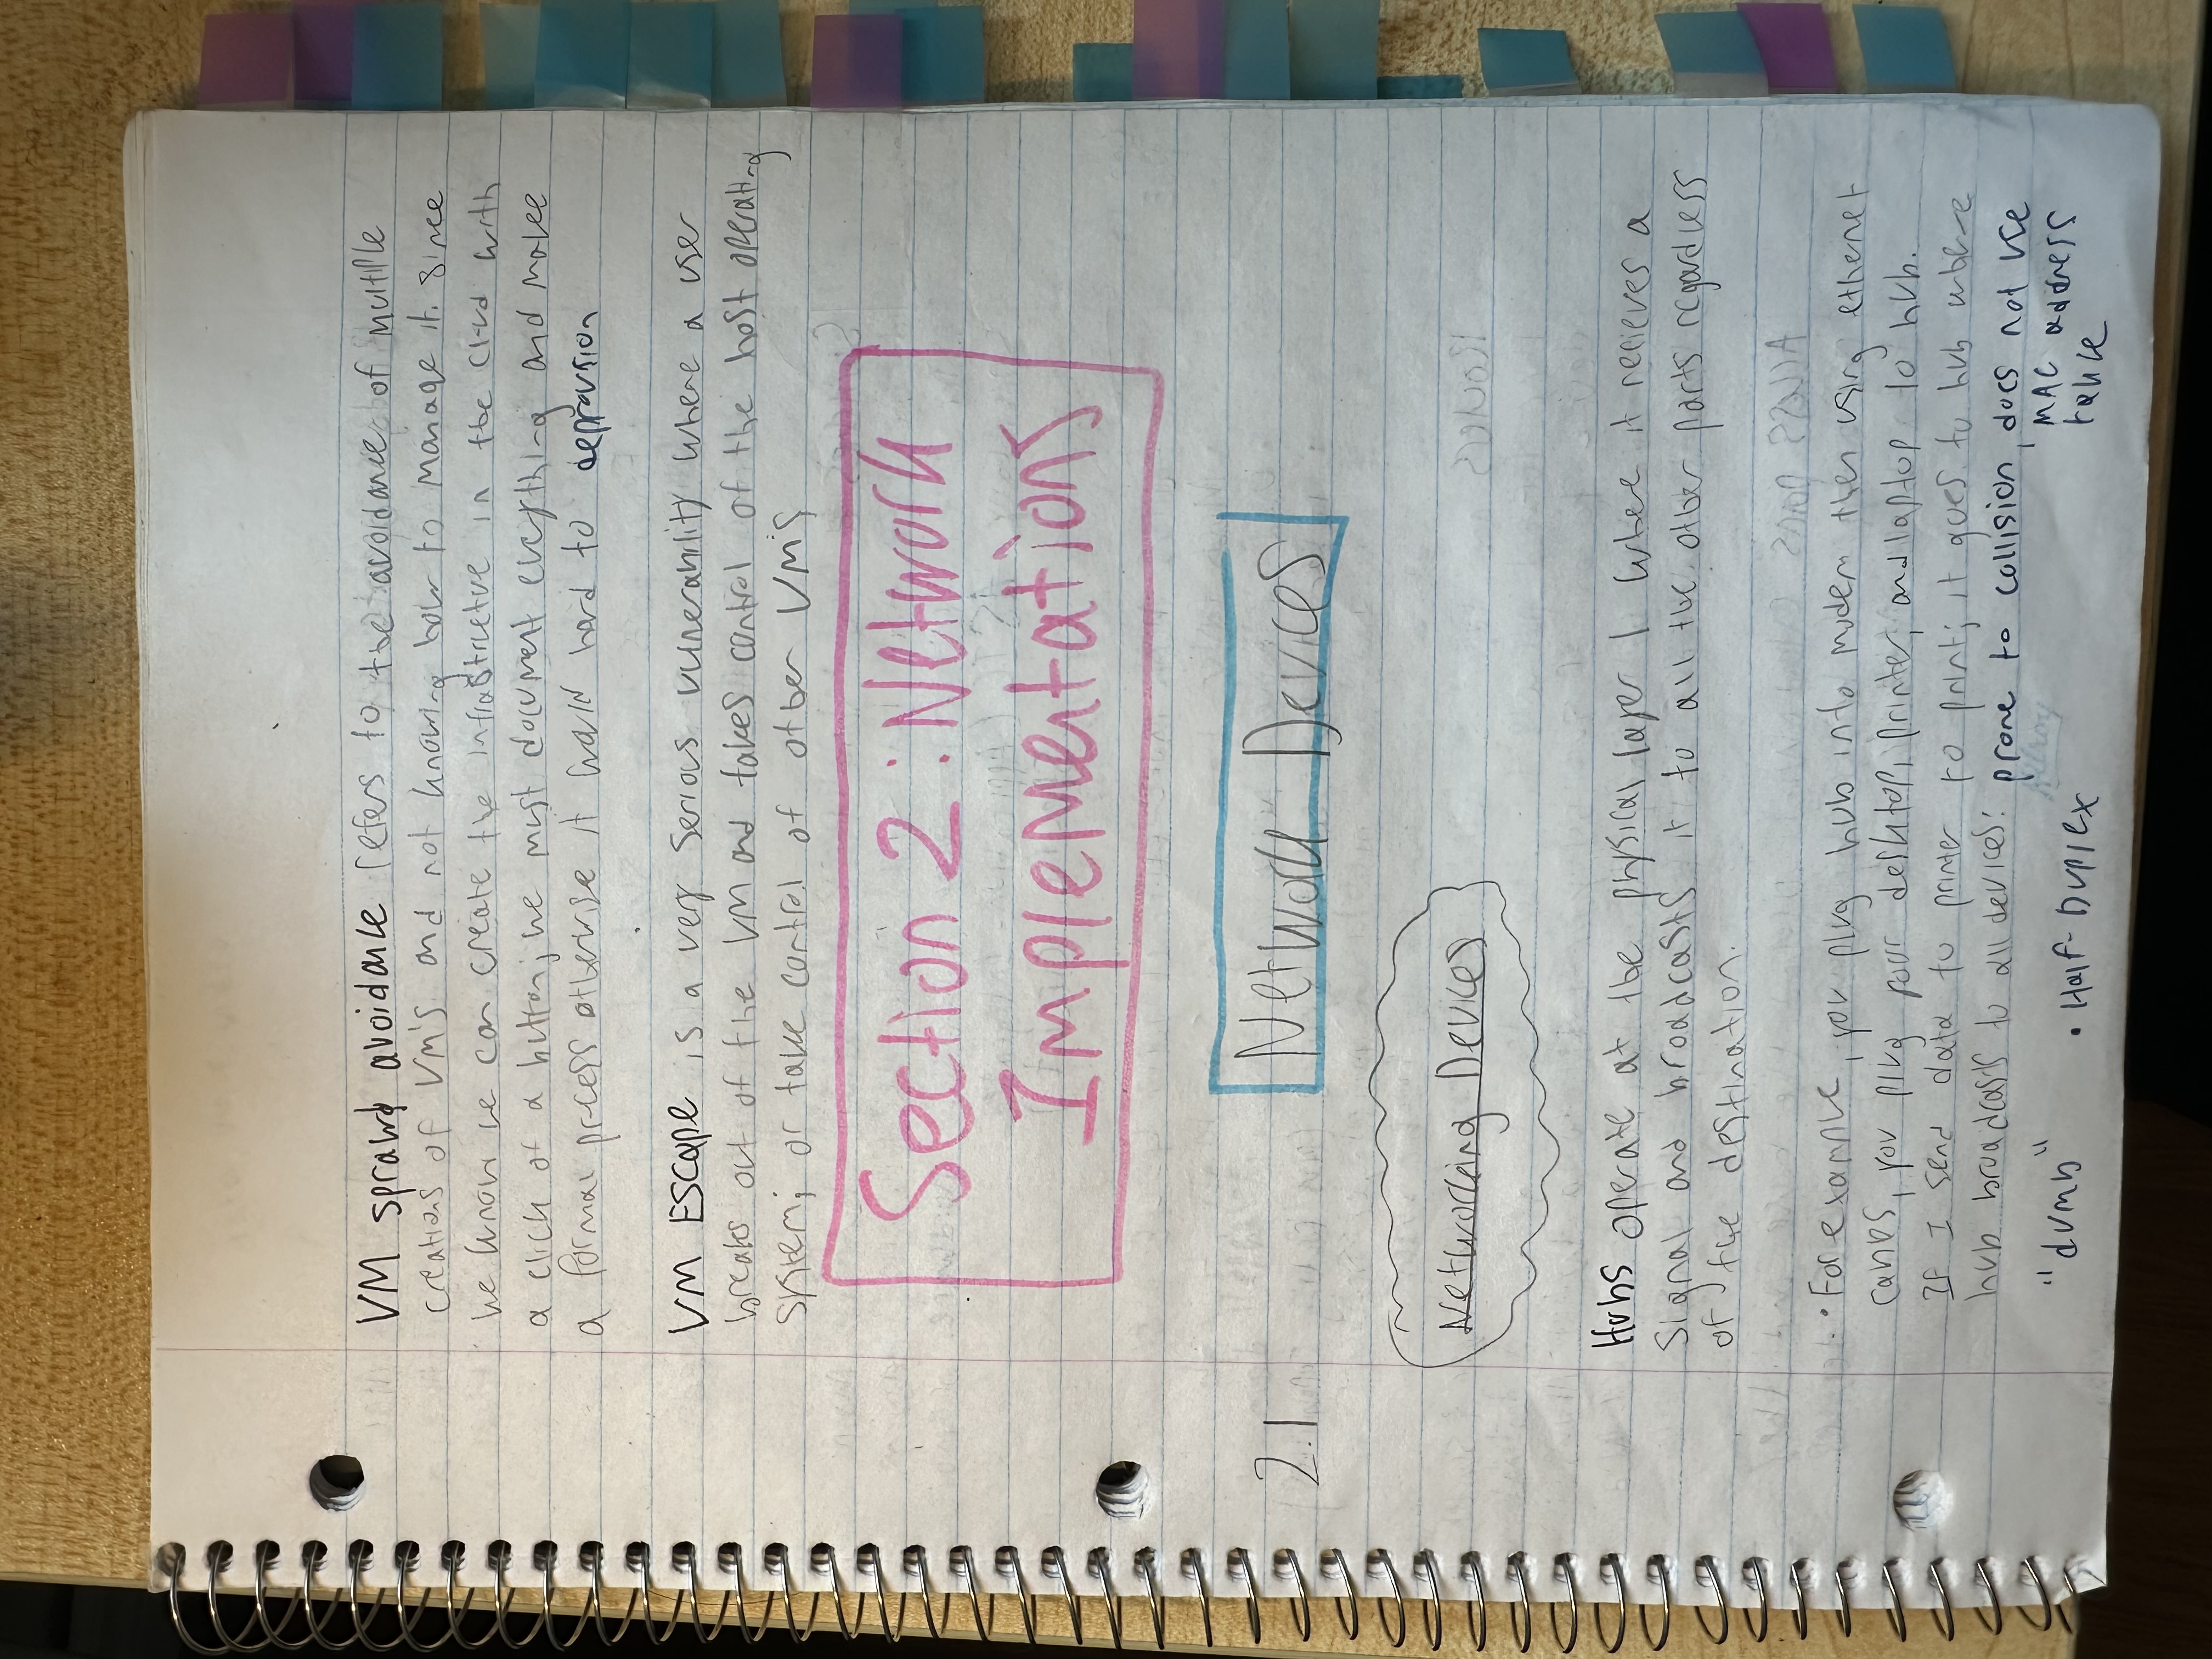 VM sprawl avoidance refers to the avoidance of multiple
creations of VM's and not knowing how to manage it. Since
we know we can create the infrastructue in the cloud with
a click of a button; we must document everything and make
a formal process otherwise it would hard to deprovsion
VM Escape is a very serious vulnerability where a user
breaks out of the VM and takes control of the host operating
system; or take control of other VM's
Section 2: Network
Implementations
2.1 Network Devices
Networking Devices
Hubs operate at the physical layer 1 where it recieves a
signal and broadcasts it to all the other ports regardless
of the destination.
• For example, you plug hub into modem then using ethernet
cables, you plug your desktop, printer, and laptop to hub.
If I send data to printer to print; it goes to hub where
hub broadcasts to all devices: prone to collision, does not use
MAC address
table
"dumb" • Half-Duplex